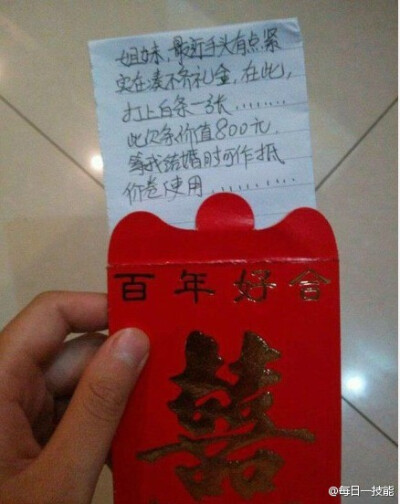 姐妹,最近手头有点紧
实在凑不齐礼金,在此,
打上白条一张........
此欠条价值800元.
等我结婚时可作抵
价卷使用............
百年好合
囍
@每日一技能